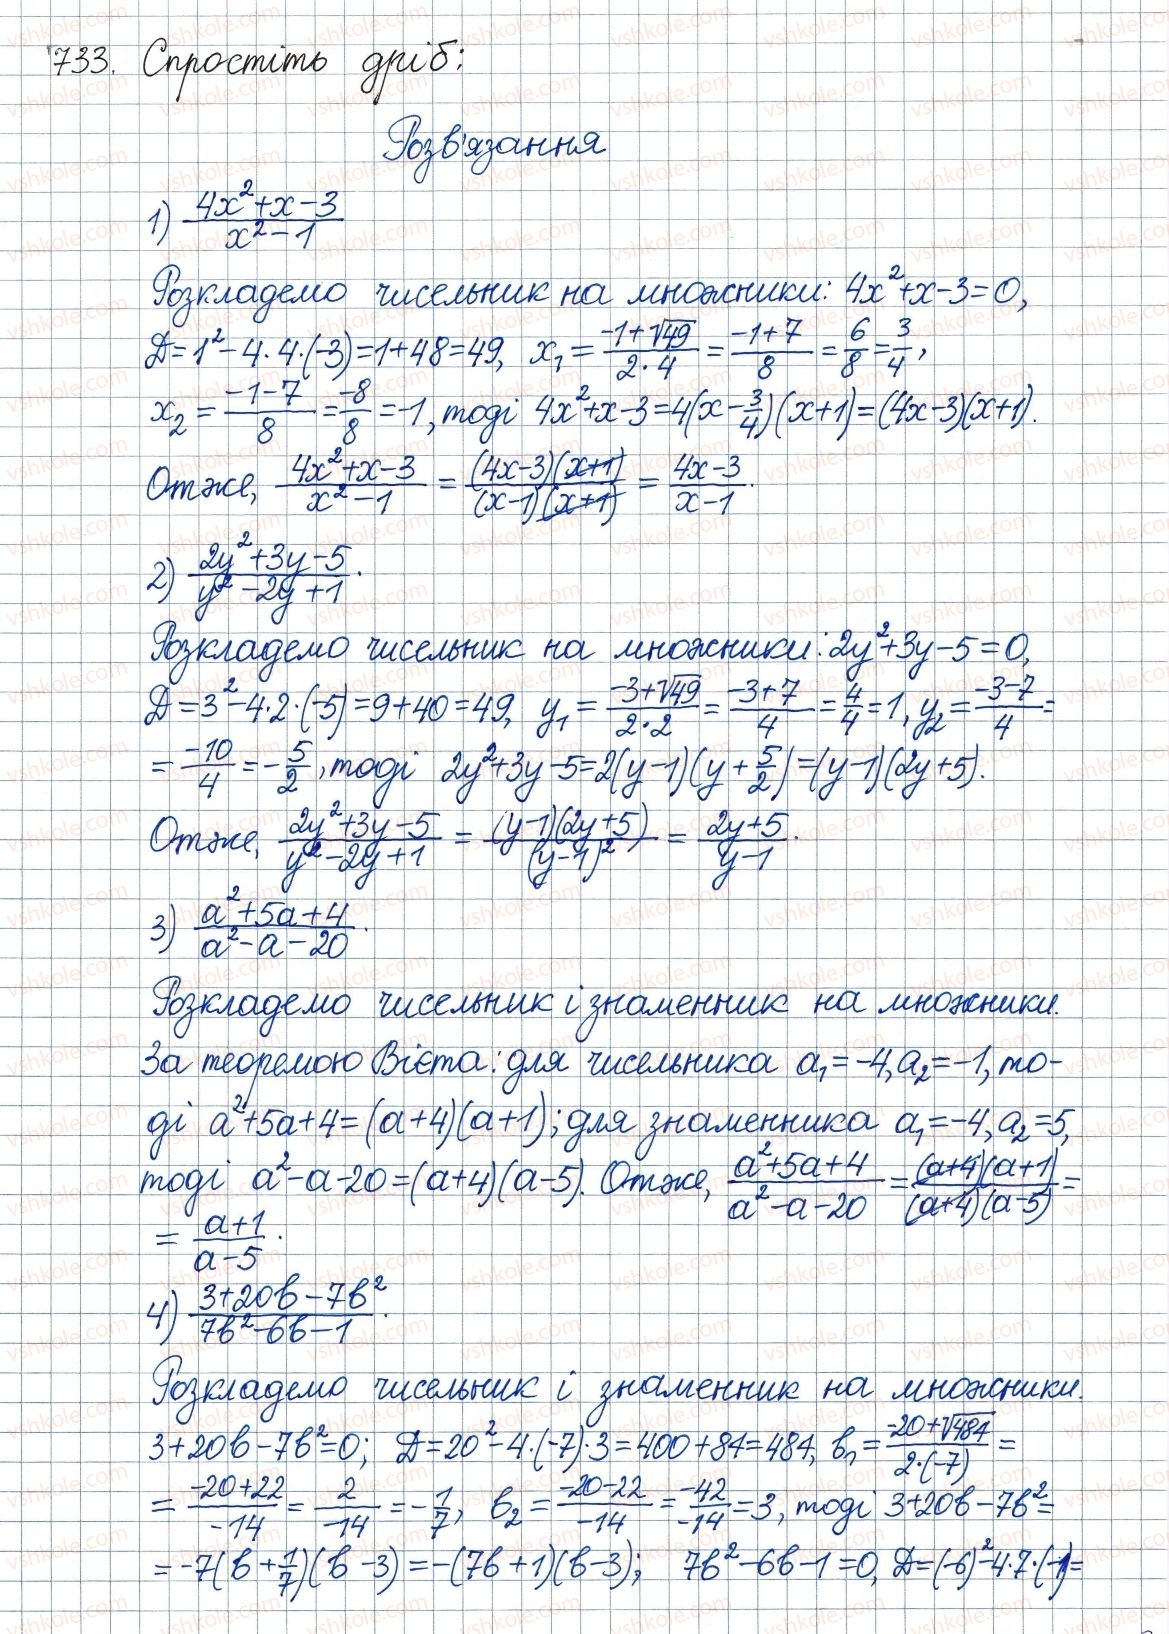 733. Спростіть дріб:
Розв'язання
1) (4x²+x-3)/(x²-1)
Розкладемо чисельник на множники: 4x²+x-3=0,
D=1²-4·4·(-3)=1+48=49, x₁=(-1+√49)/(2·4)=(-1+7)/8=6/8=3/4,
x₂=(-1-7)/8=-8/8=-1, тоді 4x²+x-3=4(x-3/4)(x+1)=(4x-3)(x+1).
Отже, (4x²+x-3)/(x²-1)=((4x-3)(x+1))/((x-1)(x+1))=(4x-3)/(x-1).
2) (2y²+3y-5)/(y²-2y+1).
Розкладемо чисельник на множники: 2y²+3y-5=0,
D=3²-4·2·(-5)=9+40=49, y₁=(-3+√49)/(2·2)=(-3+7)/4=4/4=1, y₂=(-3-7)/4=
=-10/4=-5/2, тоді 2y²+3y-5=2(y-1)(y+5/2)=(y-1)(2y+5).
Отже, (2y²+3y-5)/(y²-2y+1)=((y-1)(2y+5))/(y-1)²=(2y+5)/(y-1).
3) (a²+5a+4)/(a²-a-20).
Розкладемо чисельник і знаменник на множники.
За теоремою Вієта: для чисельника a₁=-4, a₂=-1, то-
ді a²+5a+4=(a+4)(a+1); для знаменника a₁=-4, a₂=5,
тоді a²-a-20=(a+4)(a-5). Отже, (a²+5a+4)/(a²-a-20)=((a+4)(a+1))/((a+4)(a-5))=
=(a+1)/(a-5).
4) (3+20b-7b²)/(7b²-6b-1).
Розкладемо чисельник і знаменник на множники.
3+20b-7b²=0; D=20²-4·(-7)·3=400+84=484, b₁=(-20+√484)/(2·(-7))=
=(-20+22)/-14=2/-14=-1/7, b₂=(-20-22)/-14=-42/-14=3, тоді 3+20b-7b²=
=-7(b+1/7)(b-3)=-(7b+1)(b-3); 7b²-6b-1=0, D=(-6)²-4·7·(-1)=
vshkole.com